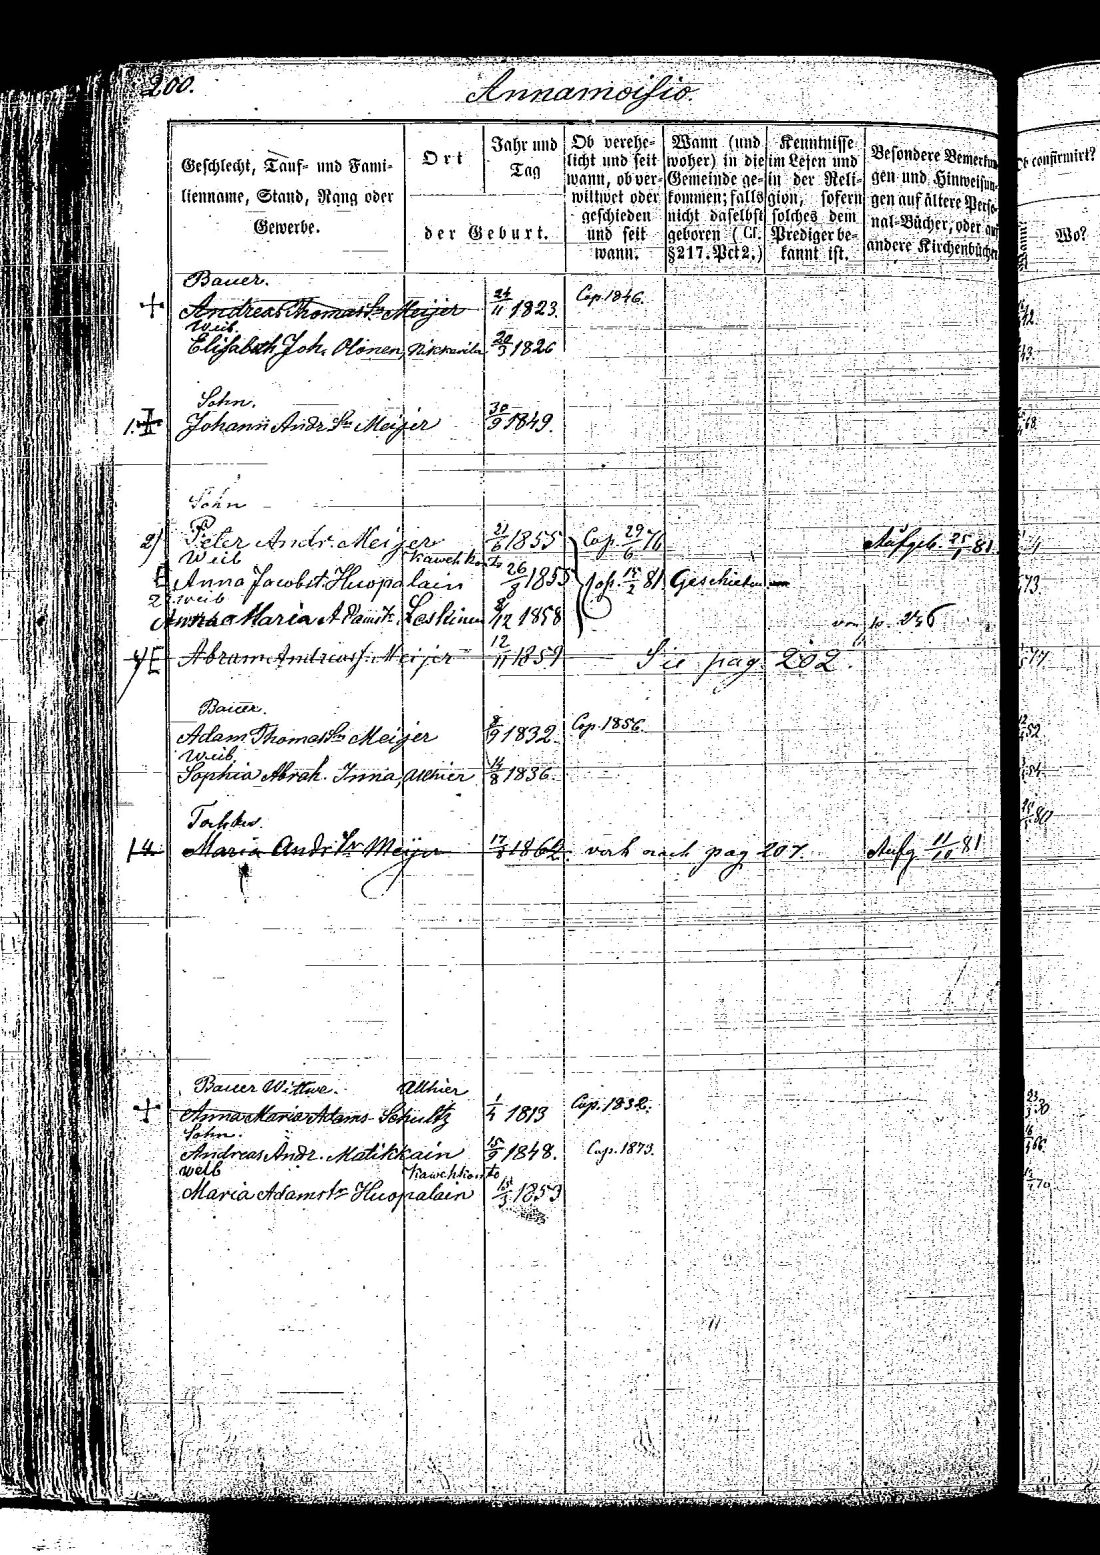 200.
Annamoisio.
Geschlecht, Tauf- und Fami-
lienname, Stand, Rang oder
Gewerbe.
Ort
Jahr und
Tag
der Geburt.
Ob verehe-
licht und seit
wann, ob ver-
wittwet oder
geschieden
und seit
wann.
Wann (und
woher) in die
Gemeinde ge-
kommen; falls
nicht daselbst
geboren (Cf.
§ 217. Pct 2.)
Kenntnisse
im Lesen und
in der Reli-
gion, sofern
solches dem
Prediger be-
kannt ist.
Besondere Bemerkun-
gen und Hinweisun-
gen auf ältere Perso-
nal-Bücher, oder auf
andere Kirchenbücher
Ob confirmirt?
Wann?
Wo?
Bauer.
Andreas Thomas Sn Meijer 24/11 1823. Cop. 1846.
Weib.
Elisabeth Joh. Olönen, 20/3 1826
Sohn.
1. Johann Andr. Sn Meijer 30/9 1849.
Sohn
2) Peter Andr. Meijer 21/6 1855 Cop. 29/6 76 Aufgeb. 25/1 81.
Weib Kawehkonto
E Anna Jacobst. Huopalain 26/8 1855 Cop. 15/2 81. Geschieden
2 weib
Anna Maria Adamst. Leskinen 8/12 1858 von p. 246
4 E Abram Andreas f. Meijer 12/11 1859 Sie pag 202.
Bauer.
Adam Thomas Sn Meijer 8/9 1832. Cop. 1856.
Weib.
Sophia Abrah. Inna, allhier 14/8 1836.
Tochter.
Maria Andr. Tr Meijer 17/8 1862. nach pag 207. Aufg 11/10 81
Bauer Wittwe. Allhier
Anna Maria Adams Schultz 1/4 1813 Cop. 1832.
Sohn.
Andreas Andr. Matikkain 15/9 1848. Cop. 1873.
weib Kawehkonto
Maria Adamstr Huopalain 15/3 1853